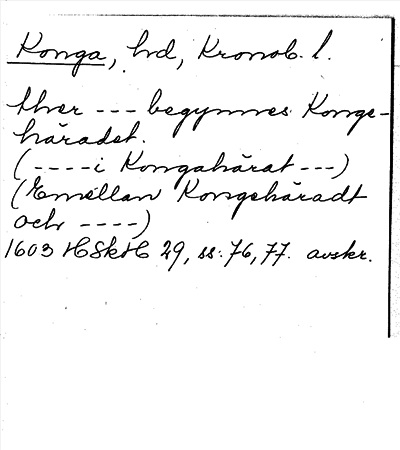 Konga, hd, Kronob. l.
ther --- begynnes Konge-
häradet.
(---- i Kongahärat ---)
(Emellan Kongehäradt
och ----)
1603 HSkH 29, ss. 76, 77. avskr.